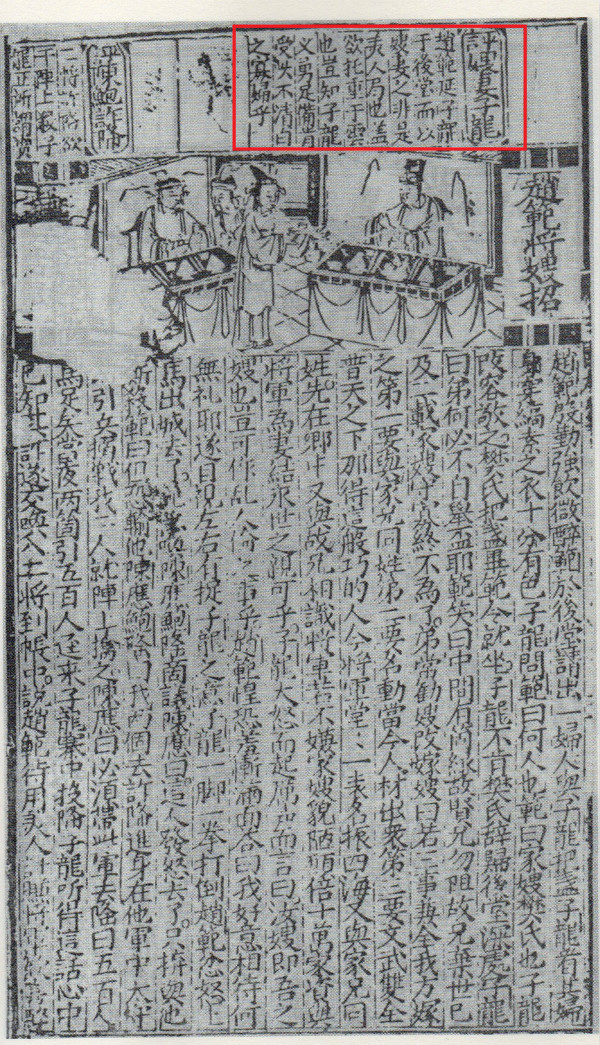 子龍
趙範延子龍
于後堂而以
嫂妻之非是
美人局也蓋
欲托重于雲
也豈知子龍
义勇足備肯
受失不清白
之寡婦乎
評陳鮑詐降
二將詐降欲
于陣上殺子
龍正所謂
趙範將嫂招
趙範殷勤強飲微醉範於後堂請出一婦人與子龍把盞子龍看其婦
身穿縞素之衣十分有色子龍問範曰何人也範曰家嫂樊氏也子龍
改容敬之樊氏把盞畢範令就坐子龍不肯樊氏辞歸後堂深處子龍
曰弟何必不自舉盃耶範笑曰中間有箇緣故賢兄勿阻故兄棄世已
及二載家嫂守寡終不為了弟常勸嫂改嫁嫂曰若三事兼全我方嫁
之第一要與家兄同姓第二要名動當今人材出衆第三要文武雙全
普天之下那得這般巧的人今將軍堂〻一表名振四海又與家兄同
姓先在鄉中又與故兄相識將軍若不嫌家嫂貌陋頗倍十萬家資與
將軍為妻結永世之親可乎子龍大怒而起厲声而言曰汝嫂即吾之
嫂也豈可作乱人倫之事乎趙範惶恐羞慚滿面答曰我好意相待何
無礼耶遂目視左右有捉子龍之意子龍一脚一拳打倒趙範忿怒上
馬出城去了喚陳應鮑隆商議陳應曰這人發怒去了只拚與他
厮殺範曰但恐輸他陳應鮑隆曰我两個去詐降進身在他軍中太守
引兵搦戰我二人就陣上擒之陳應曰必須帶些軍去隆曰五百人
馬足矣當夜两箇引五百人迳來子龍寨中投降子龍听得這話心中
已知其詐遂交喚入二將到帳中說趙範待用美人計